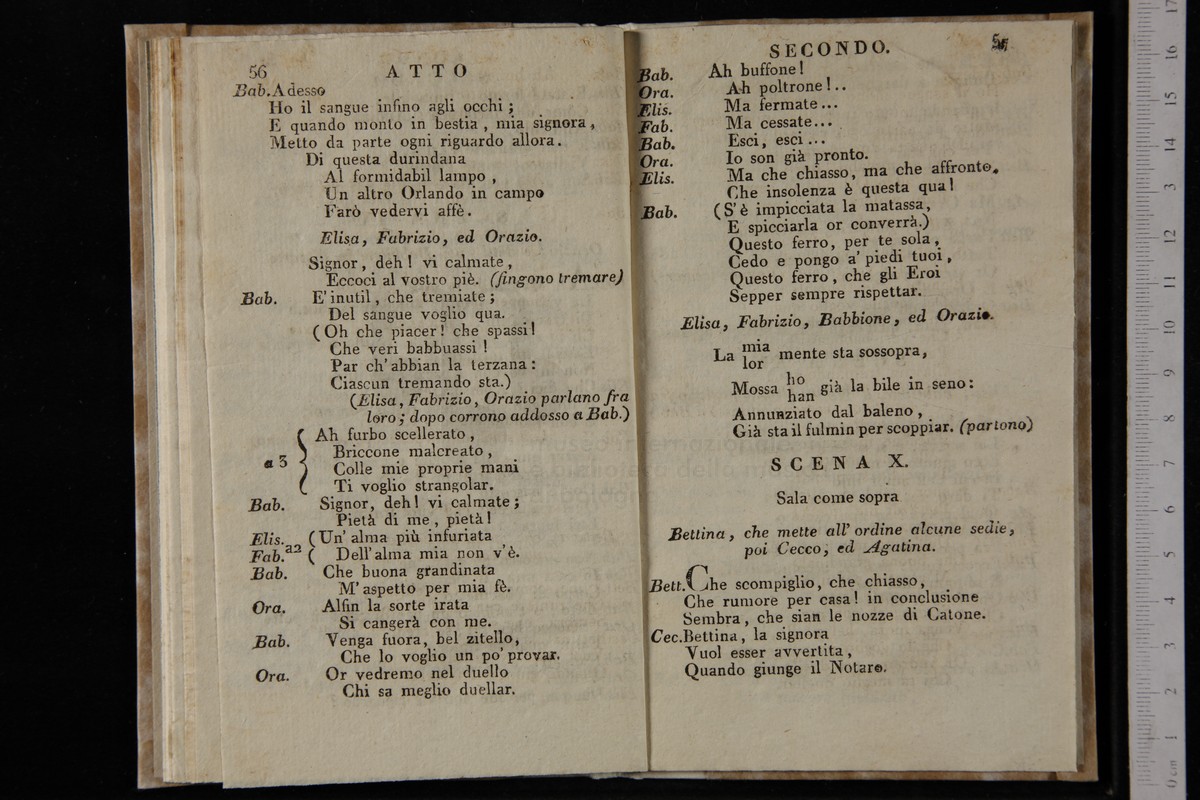 56 ATTO
Bab. Adesso
Ho il sangue infino agli occhi ;
E quando monto in bestia , mia signora ,
Metto da parte ogni riguardo allora .
Di questa durindana
Al formidabil lampo ,
Un altro Orlando in campo
Farò vedervi affè .
Elisa, Fabrizio, ed Orazio.
Signor, deh! vi calmate ,
Eccoci al vostro piè. (fingono tremare)
Bab. E' inutil , che tremiate ;
Del sangue voglio qua.
(Oh che piacer! che spassi!
Che veri babbuassi !
Par ch' abbian la terzana :
Ciascun tremando sta.)
(Elisa, Fabrizio, Orazio parlano fra
loro ; dopo corrono addosso a Bab.)
Ah furbo scellerato ,
Briccone malcreato ,
a 3 Colle mie proprie mani
Ti voglio strangolar.
Bab. Signor, deh! vi calmate ;
Pietà di me , pietà!
Elis. (Un' alma più infuriata
Fab. a2 ( Dell' alma mia non v'è.
Bab. Che buona grandinata
M' aspetto per mia fè.
Ora. Alfin la sorte irata
Si cangerà con me.
Bab. Venga fuora, bel zitello,
Che lo voglio un po' provar.
Ora. Or vedremo nel duello
Chi sa meglio duellar.
SECONDO.
Bab. Ah buffone!
Ora. Ah poltrone!..
Elis. Ma fermate...
Fab. Ma cessate...
Bab. Esci, esci...
Ora. Io son già pronto.
Elis. Ma che chiasso, ma che affronto.
Che insolenza è questa qua!
Bab. (S' è impicciata la matassa,
E spicciarla or converrà.)
Questo ferro, per te sola,
Cedo e pongo a' piedi tuoi ,
Questo ferro, che gli Eroi
Sepper sempre rispettar.
Elisa, Fabrizio, Babbione, ed Orazio.
La mia mente sta sossopra,
lor
Mossa ho già la bile in seno:
han
Annunziato dal baleno ,
Già sta il fulmin per scoppiar. (partono)
SCENA X.
Sala come sopra
Bettina, che mette all' ordine alcune sedie,
poi Cecco, ed Agatina.
Bett. Che scompiglio, che chiasso,
Che rumore per casa! in conclusione
Sembra, che sian le nozze di Catone.
Cec. Bettina, la signora
Vuol esser avvertita,
Quando giunge il Notaro.
0 cm 1 2 3 4 5 6 7 8 9 10 11 12 13 14 15 16 17